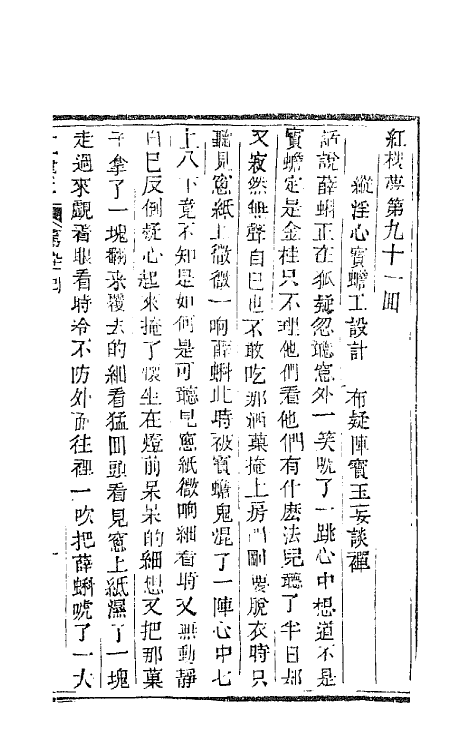 紅楼夢第九十一囬
縱淫心寳蟾工設計　布疑陣寳玉妄談禪
話說薛蝌正在狐疑忽聽窻外一笑唬了一跳心中想道不是
寳蟾定是金桂只不理他們看他們有什麽法兒聽了半日却
又寂然無聲自已也不敢吃那酒菓掩上房門剛要脫衣時只
聽見窻紙上微微一响薛蝌此時被寳蟾鬼混了一陣心中七
上八下竟不知是如何是可聽見窻紙微响細看時又無動靜
自已反倒疑心起來掩了懷坐在燈前呆呆的細想又把那菓
子拿了一塊翻來覆去的細看猛囬頭看見窻上紙濕了一塊
走過來覷着眼看時冷不防外面往裡一吹把薛蝌唬了一大